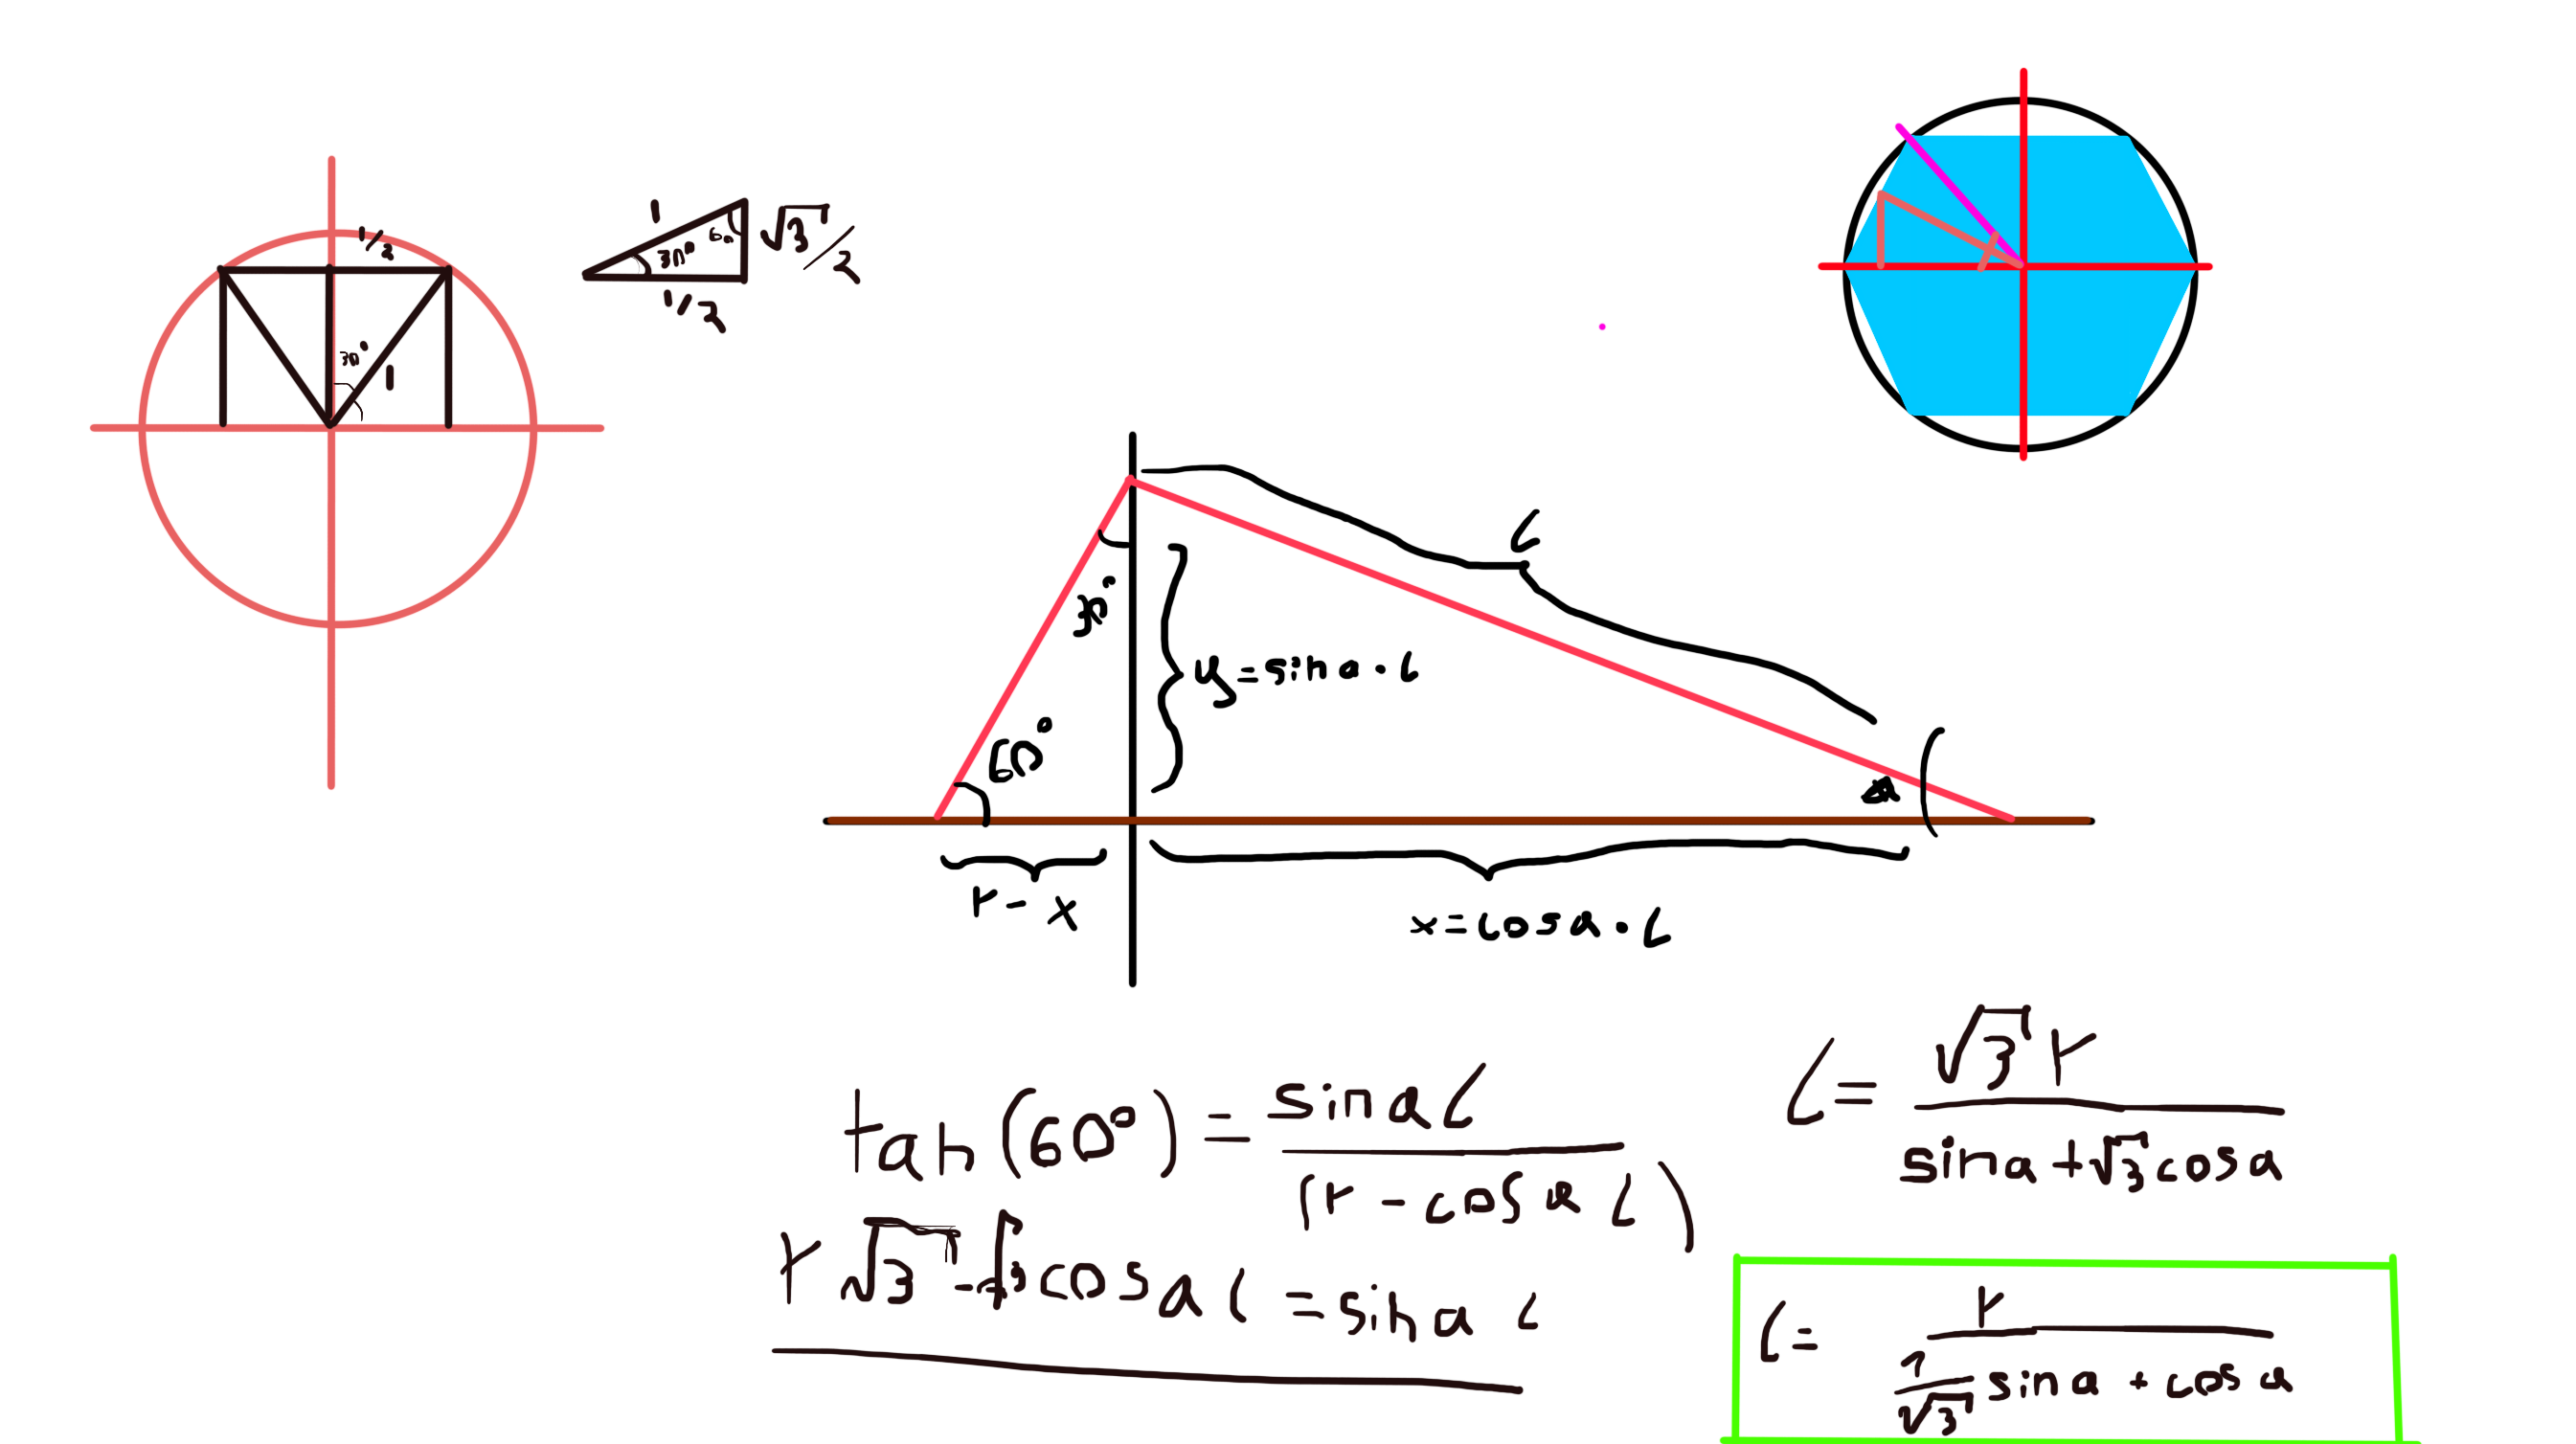 1/2
30°
1
1
30°
60
√3/2
1/2
L
30°
y=sin a · L
60°
a
r - x
x=cos a · L
tan(60°) = sin a L / (r - cos a L)
r√3 - √3 cos a L = sin a L
L = √3 r / sin a + √3 cos a
L = r / 1/√3 sin a + cos a